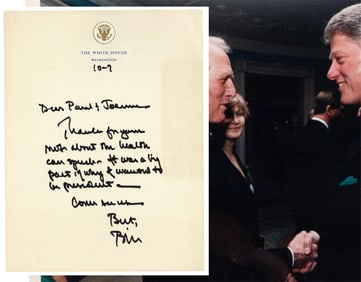 THE WHITE HOUSE
WASHINGTON
10-7
Dear Paul & Joanne
Thanks for your
note about the health
care speech. It was a big
part of why I wanted to
be president—
Come see us
Best,
Bill